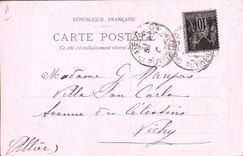 RÉPUBLIQUE FRANÇAISE
CARTE POSTALE
Ce côté est exclusivement réservé
10
Madame G Maupas
Villa San Carlo
Avenue des Célestins
Vichy
(Allier)